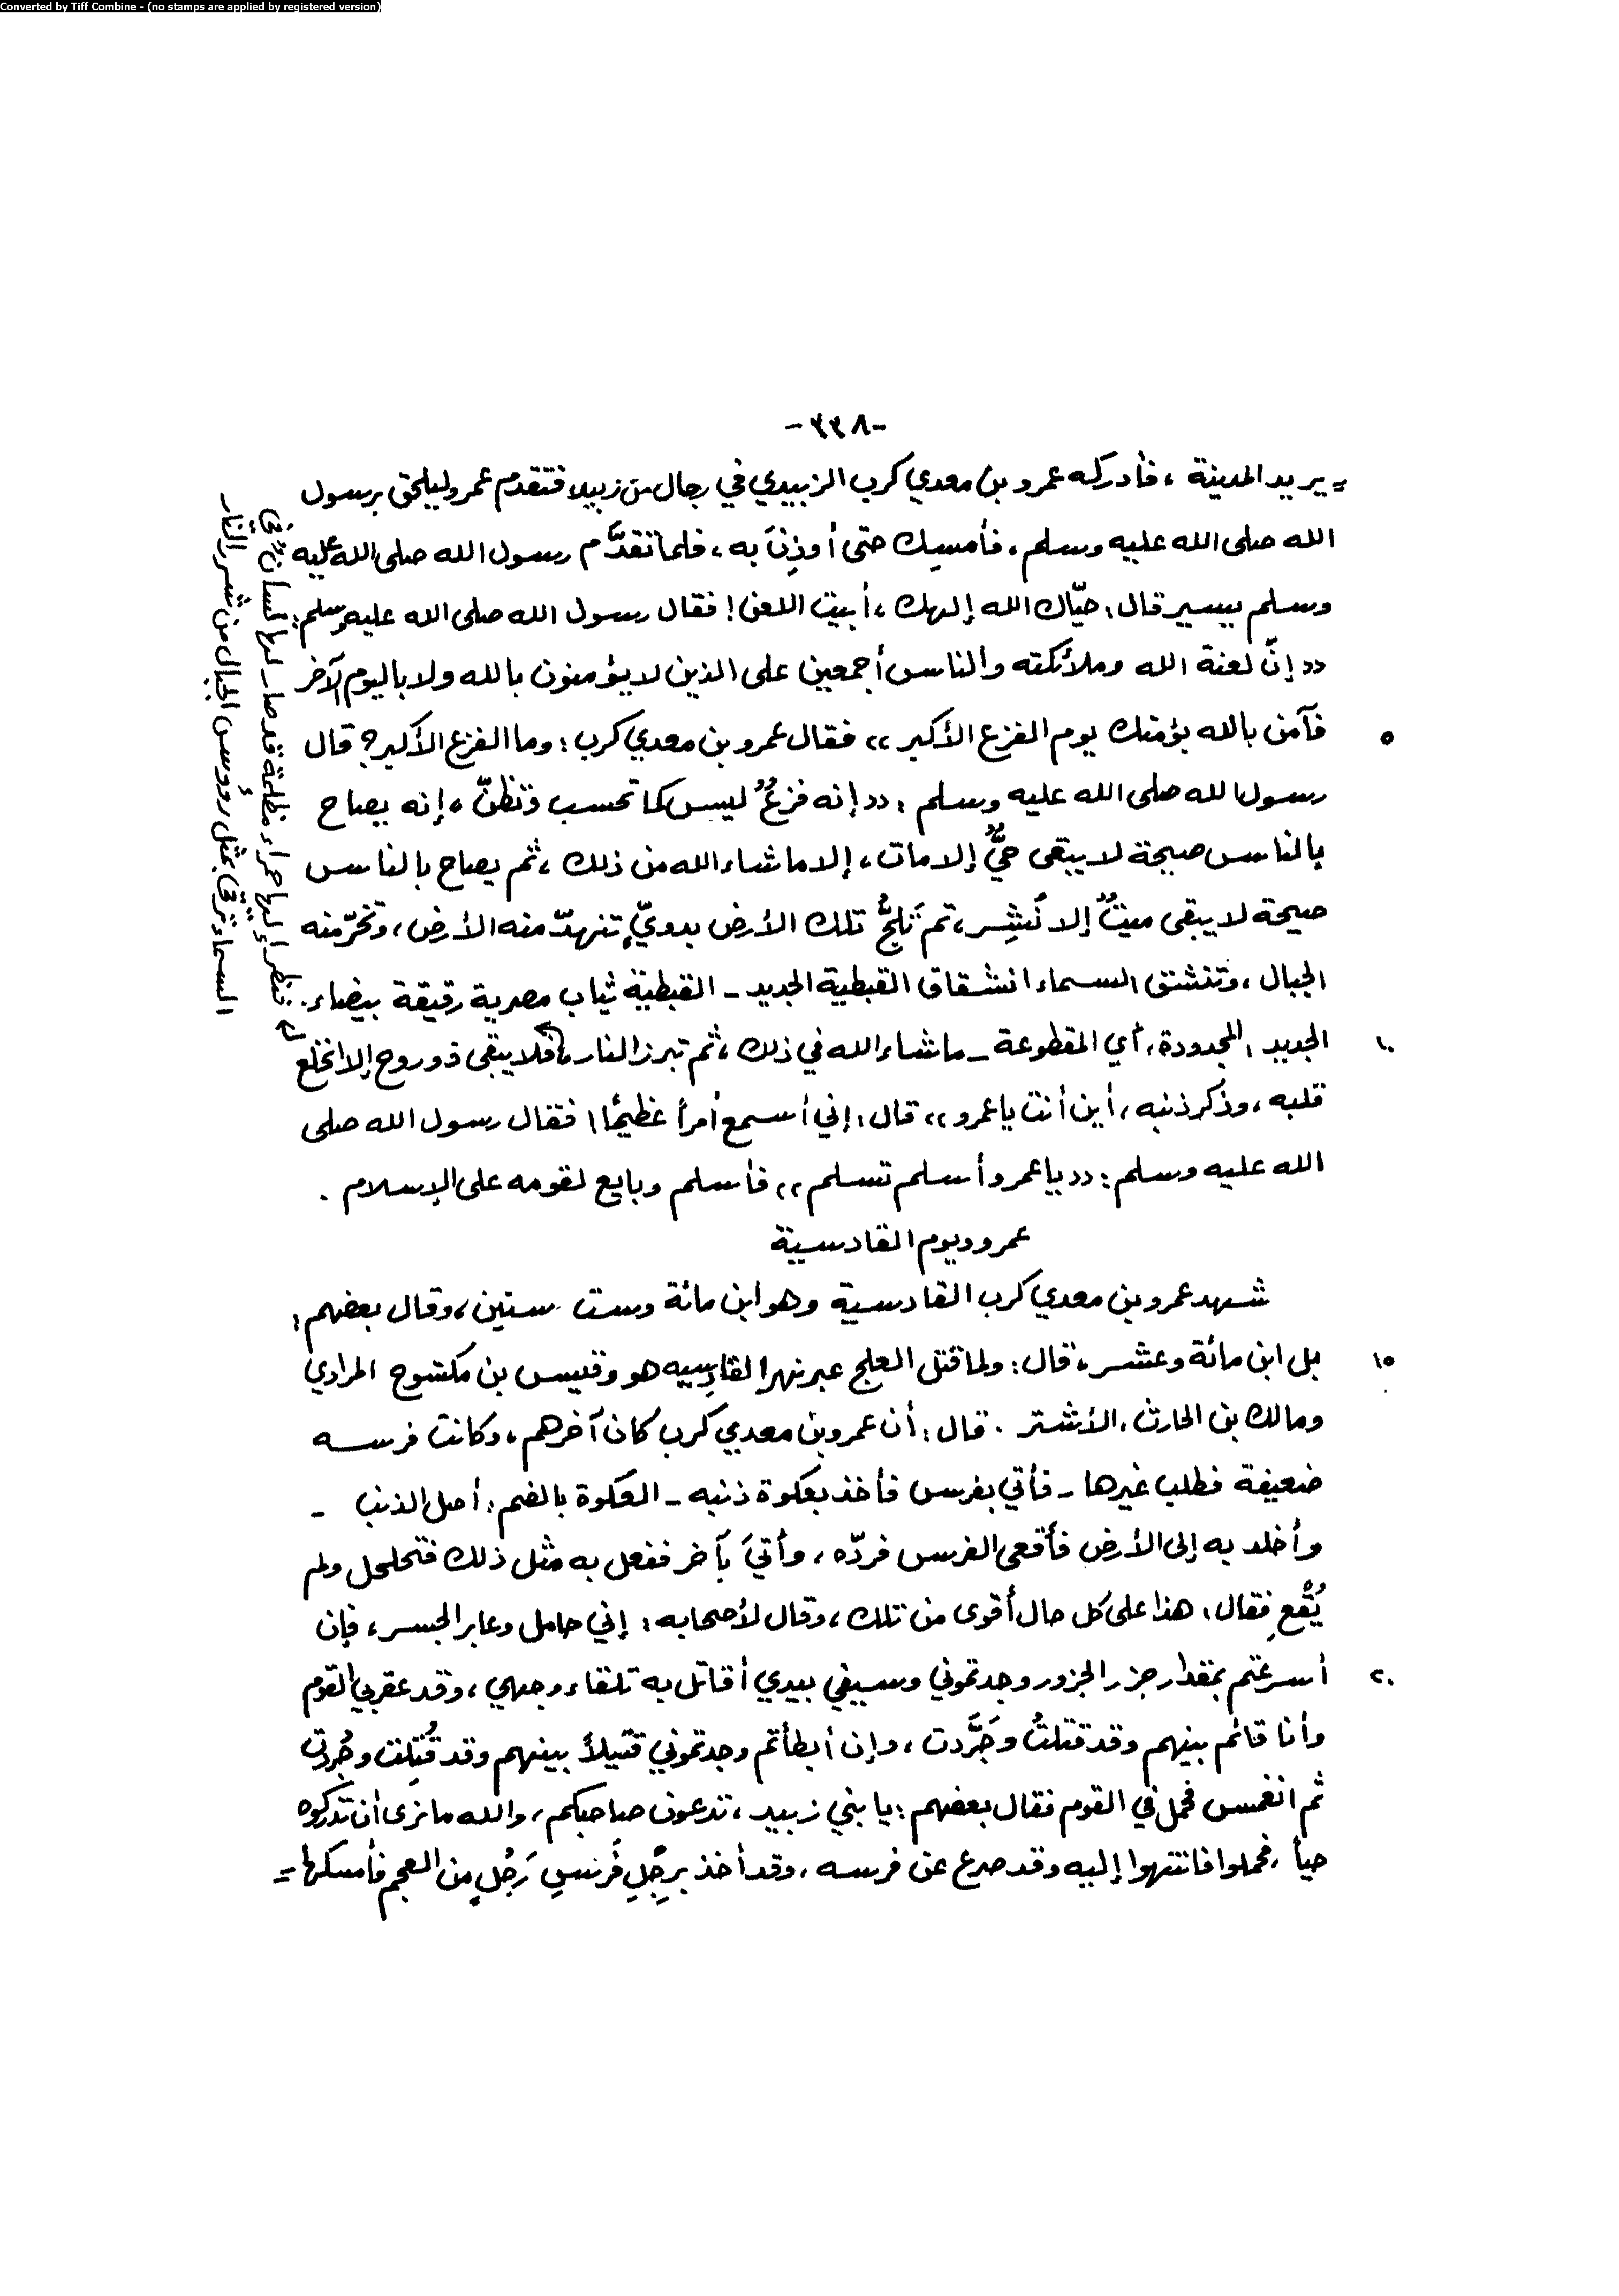 Converted by Tiff Combine - (no stamps are applied by registered version)
-٣٣٨-
= يريد المدينة ، فأدركه عمرو بن معدي كرب الزبيدي في رجال من زبيد فتقدم عمرو ليلحق برسول
الله صلى الله عليه وسلم ، فأمسك حتى أوذِنَ به ، فلما تقدَّم رسول الله صلى الله عليه
وسلم يسير قال : حيّاك الله إلهك ، أبيت اللعن ! فقال رسول الله صلى الله عليه وسلم :
(( إنّ لعنة الله وملائكته والناس أجمعين على الذين لا يؤمنون بالله ولا باليوم الآخر
فآمن بالله يؤمنك يوم الفزع الأكبر )) فقال عمرو بن معدي كرب : وما الفزع الأكبر ؟ قال ٥
رسول الله صلى الله عليه وسلم : (( إنه فزعٌ ليس كما تحسب وتظنّ ، إنه يصاح
بالناس صيحة لا يبقى حيٌّ إلا مات ، إلا ما شاء الله من ذلك ، ثم يصاح بالناس
صيحة لا يبقى ميتٌ إلا نُشِر ، ثم تَلِجُّ تلك الأرض بدويٍّ تنهدّ منه الأرض ، وتخرّ منه
الجبال ، وتنشق السماء انشقاق القبطية الجديد - القبطية ثياب مصرية رقيقة بيضاء .
الجديد : المجدودة ، أي المقطوعة - ما شاء الله في ذلك ، ثم تبرز النار ، فلا يبقى ذو روح إلا انخلع ١٠
قلبه ، وذكر ذنبه ، أين أنت يا عمرو )) قال : إني أسمع أمراً عظيمًا ! فقال رسول الله صلى
الله عليه وسلم : (( يا عمرو أسلم تسلم )) فأسلم وبايع لقومه على الإسلام .
فينظر إليها حمراء مظلمة قد صار لها لسان في
السماء ترمي بمثل رؤوس الجبال من شرر النّار
عمرو ويوم القادسية
شهد عمرو بن معدي كرب القادسية وهو ابن مائة وست ستين ، وقال بعضهم :
بل ابن مائة وعشر ، قال : ولما قتل العلج عبر نهر القادِسيه هو وقيس بن مكشوح المرادي ١٥
ومالك بن الحارث ، الأشتر . قال : أن عمرو بن معدي كرب كان آخرهم ، وكانت فرسه
ضعيفة فطلب غيرها - فأتي بفرس فأخذ بعكوة ذنبه - العكوة بالضم : أصل الذنب -
وأخلد به إلى الأرض فأقعى الفرس فردّه ، وأتيَ بآخر ففعل به مثل ذلك فتحلحل ولم
يُقْعِ فقال : هذا على كل حال أقوى من تلك ، وقال لأصحابه : إني حامل وعابر الجسر ، فإن
أسرعتم بمقدار جزر الجزور وجدتموني وسيفي بيدي أقاتل به تلقاء وجهي ، وقد عقربي القوم ٢٠
وأنا قائم بينهم وقد قتلتُ وجَرَّدت ، وإن أبطأتم وجدتموني قتيلاً بينهم وقد قُتِلت وجُردت
ثم انغمس فحمل في القوم فقال بعضهم : يا بني زبيد ، تدعون صاحبكم ، والله ما نرى أن تدركوه
حياً ، فحملوا فانتهوا إليه وقد صرع عن فرسه ، وقد أخذ بِرِجْلِ فَرَسِ رَجُلٍ من العجم فأمسكها =